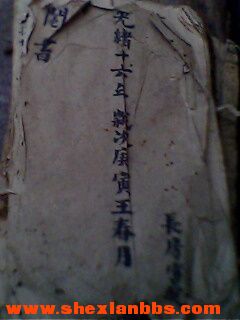 光緒十六年歲次庚寅王春月
長房
鬮書
www.shexianbbs.com